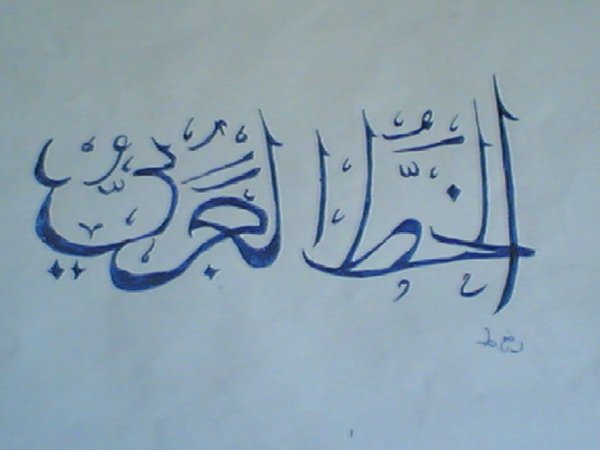 الخطُّ العَرَبيّ